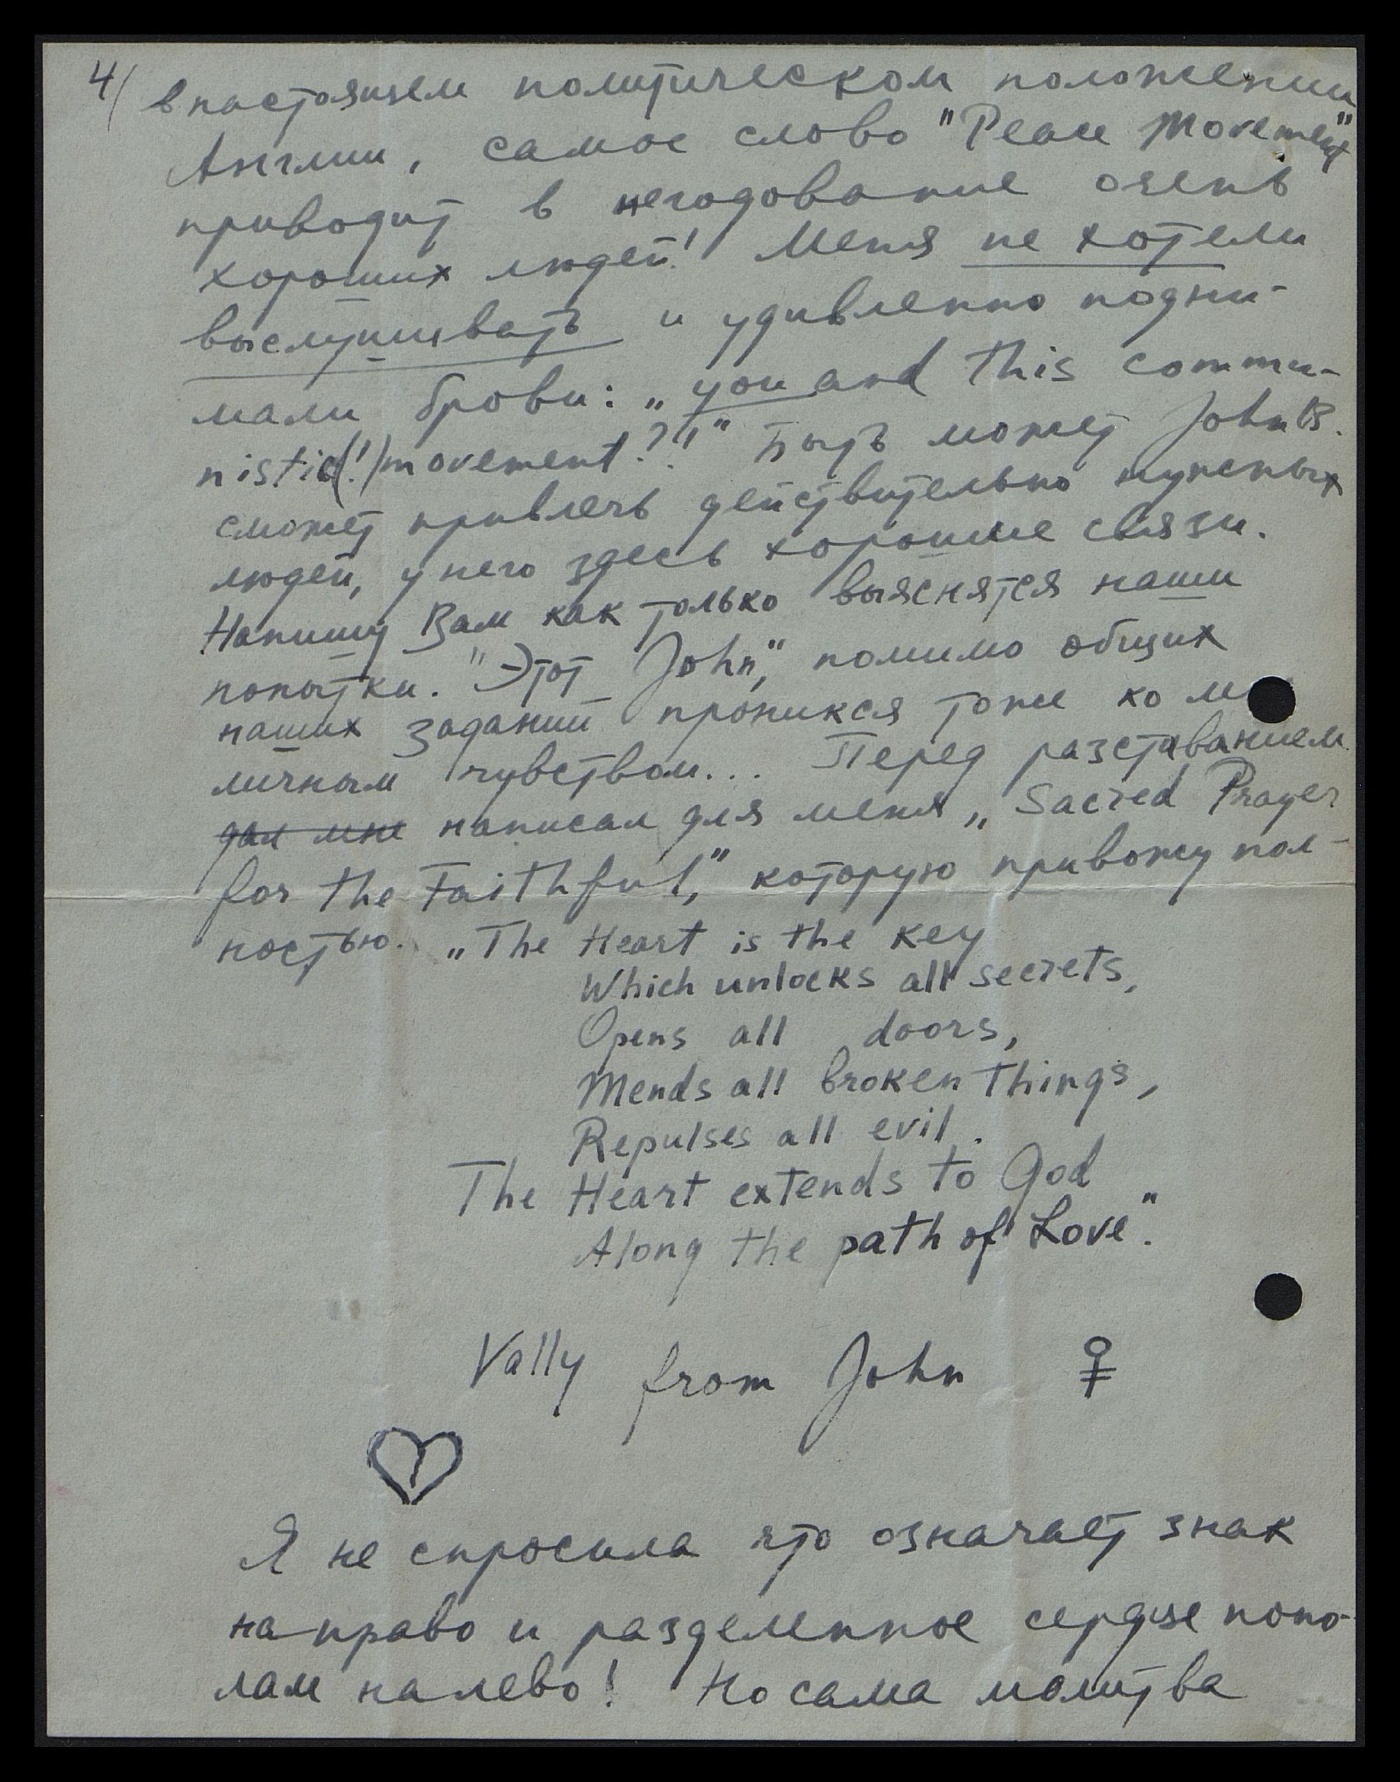 4/ в настоящем политическом положении
Англии, самое слово "Peace Movement"
приводит в негодование очень
хороших людей! Меня не хотели
выслушивать и удивленно подни-
мали брови: „you and this commu-
nistic(!) movement?!" Быть может John B.
сможет привлечь действительно нужных
людей, у него здесь хорошие связи.
Напишу Вам как только выяснятся наши
попытки. "Этот John", помимо общих
наших заданий проникся тоже ко мне
личным чувством... Перед разставанием
дал мне написал для меня „Sacred Prayer
for the Faithful", которую привожу пол-
ностью. „The Heart is the key
Which unlocks all secrets,
Opens all doors,
Mends all broken things,
Repulses all evil.
The Heart extends to God
Along the path of Love".
Vally from John ♀
Я не спросила что означает знак
направо и разделенное сердце попо-
лам налево! Но сама молитва